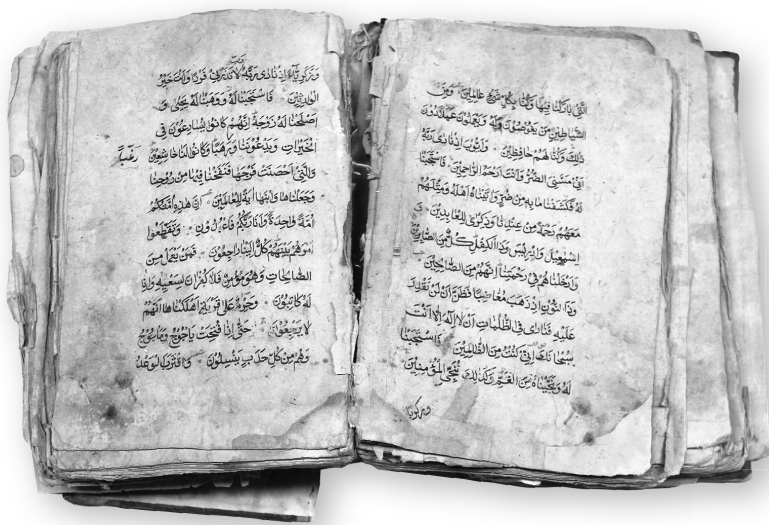 التي باركنا فيها وكنا بكل شيء عالمين ومن
الشياطين من يغوصون له ويعملون عملا دون
ذلك وكنا لهم حافظين وايوب اذ نادى ربه
اني مسني الضر وانت ارحم الراحمين فاستجبنا
له فكشفنا ما به من ضر واتيناه اهله ومثلهم
معهم رحمة من عندنا وذكرى للعابدين و
اسمعيل وادريس وذا الكفل كل من الصابرين
وادخلناهم في رحمتنا انهم من الصالحين
وذا النون اذ ذهب مغاضبا فظن ان لن نقدر
عليه فنادى في الظلمات ان لا اله الا انت
سبحانك اني كنت من الظالمين فاستجبنا
له ونجيناه من الغم وكذلك ننجي المؤمنين
وزكريا
رب
وزكريا اذ نادى ربه لا تذرني فردا وانت خير
الوارثين فاستجبنا له ووهبنا له يحيى و
اصلحنا له زوجه انهم كانوا يسارعون في
الخيرات ويدعوننا ورهبا وكانوا لنا خاشعين
رغبا
والتي احصنت فرجها فنفخنا فيها من روحنا
وجعلناها وابنها اية للعالمين ان هذه امتكم
امة واحدة وانا ربكم فاعبدون وتقطعوا
امرهم بينهم كل الينا راجعون فمن يعمل من
الصالحات وهو مؤمن فلا كفران لسعيه وانا
له كاتبون وحرم على قرية اهلكناها انهم
لا يرجعون حتى اذا فتحت ياجوج وماجوج
وهم من كل حدب ينسلون واقترب الوعد